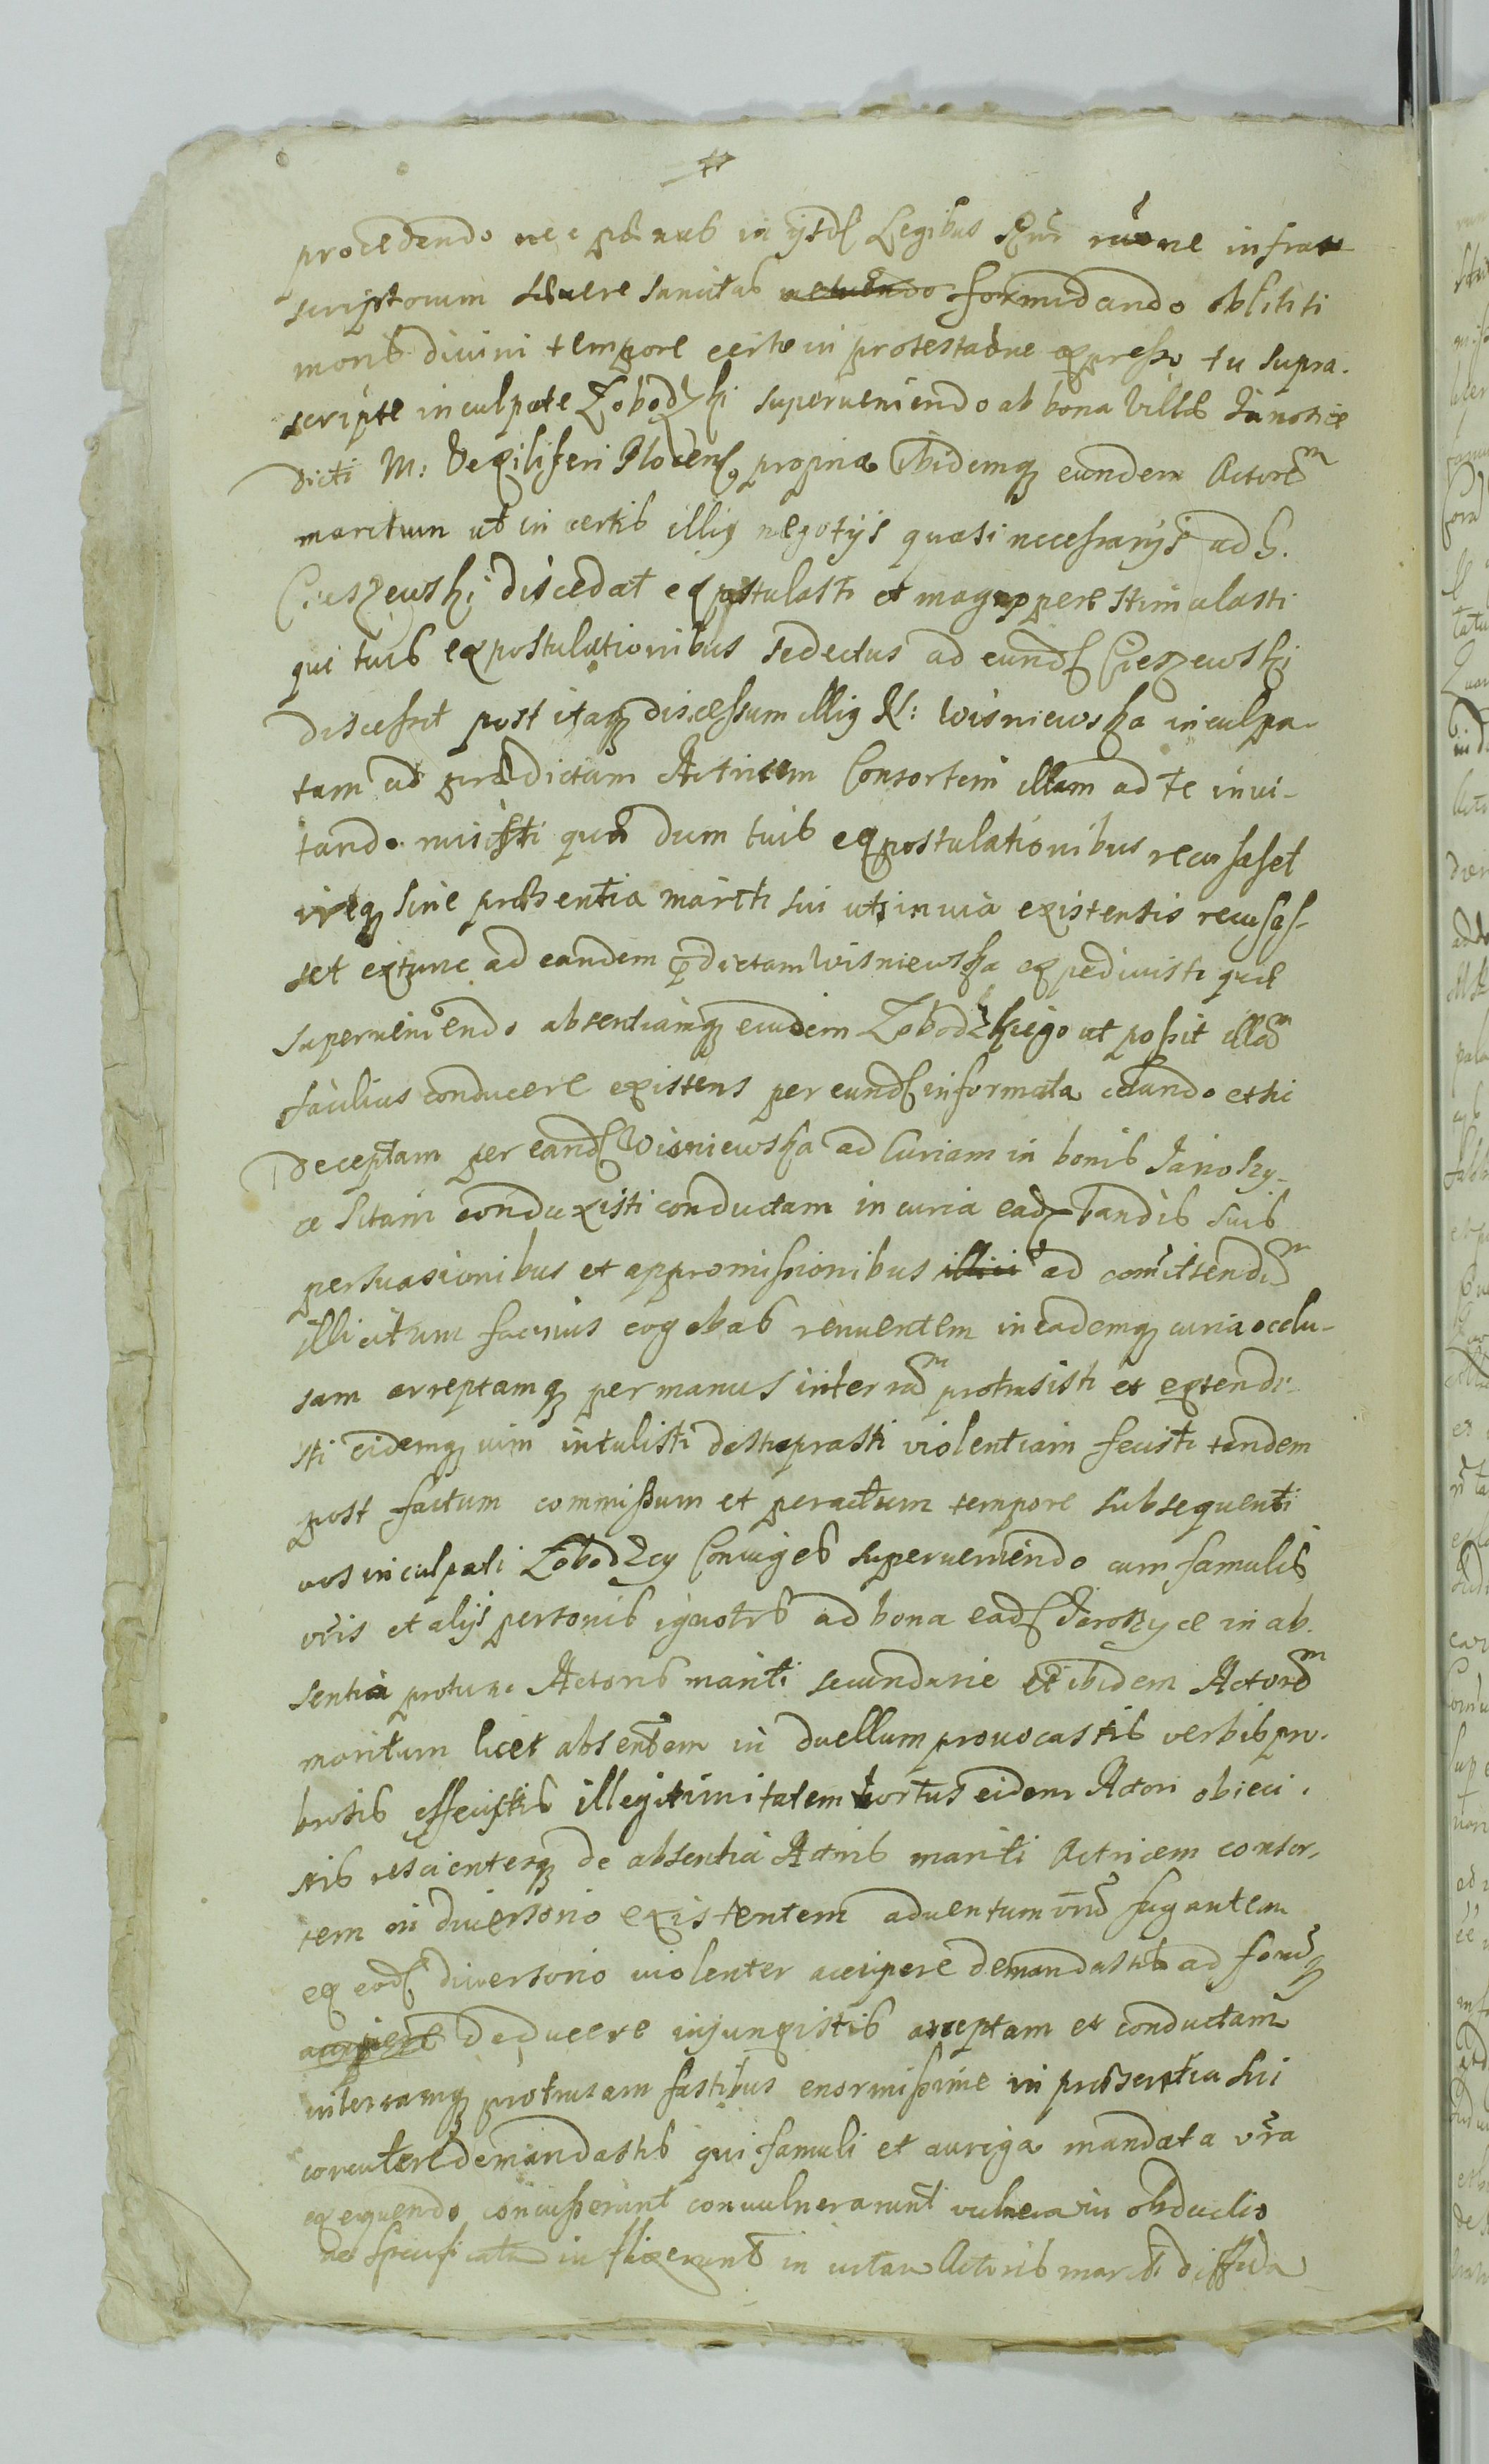 procedendo nec pænas in ijsdē Legibus rāone infra
scriptorum severe sancitas metuendo formidando obliti
moris divini tempore certo in protestaōne expresso tu supra-
scripte inculpate Zobodzki superveniendo ad bona Villæ Janosice
dicti M: Vexiliferi Plocens, propria ibidemq eundem Actorēm
maritum ut in certis illig negotijs quasi necessarijs ad G.
Cieszewski discedat expostulasti et magnoppere stimulasti
qui tuis expostulationibus seductus ad eundē Cieszewski
discessit post itaq discessum illig N: Wisniewska inculpa-
tam ad prædictam Actricem Consortem illam ad te invi-
tando misisti quæ dum tuis expostulationibus recusasset
ireq sine præsentia mariti sui uti in via existentis recusas-
set extunc ad eandem p̄dictam Wisniewska expedivisti quæ
superveniendo absentiamq eiusdem Zobodzkiego ut possit illam
facilius conducere existens per eundē informata celando et sic
deceptam per eandē Wisniewska ad Curiam in bonis Janoszy-
ce sitam conduxisti conductam in curia eadē blandis suis
persuasionibus et appromissionibus illici ad comittendūm
illicitum facinus cogebas renuentem in eademq curia occlu-
sam arreptamq per manus in terrām protrusisti et extendi-
sti eidemq vim intulisti destuprasti violentiam fecisti tandem
post factum commissum et peractum tempore subsequenti
vos inculpati Zobodzcy Coniuges superveniendo cum famulis
vris et alijs personis ignotis ad bona eadē Janoszyce in ab-
sentia protunc Actoris mariti secundarie et ibidem Actorēm
maritum licet absentem in duellum provocastis verbis pro-
brosis affecistis illegitimitatem hortus eidem Actori obieci-
stis rescientesq de absentia Actoris mariti Actricem consor-
tem in diversorio existentem adventum vrūm fugantem
ex eodē diversorio violenter accipere demandastis ad
accipere deducere injunxistis arreptam et conductam
in terramq protrusam fustibus enormissime in præsentia sui
concutere demandastis qui famuli et auriga mandata vra
exequendo concusserunt convulnerarunt vulnera in obductione
specificata inflixerunt in vitam Actoris mariti